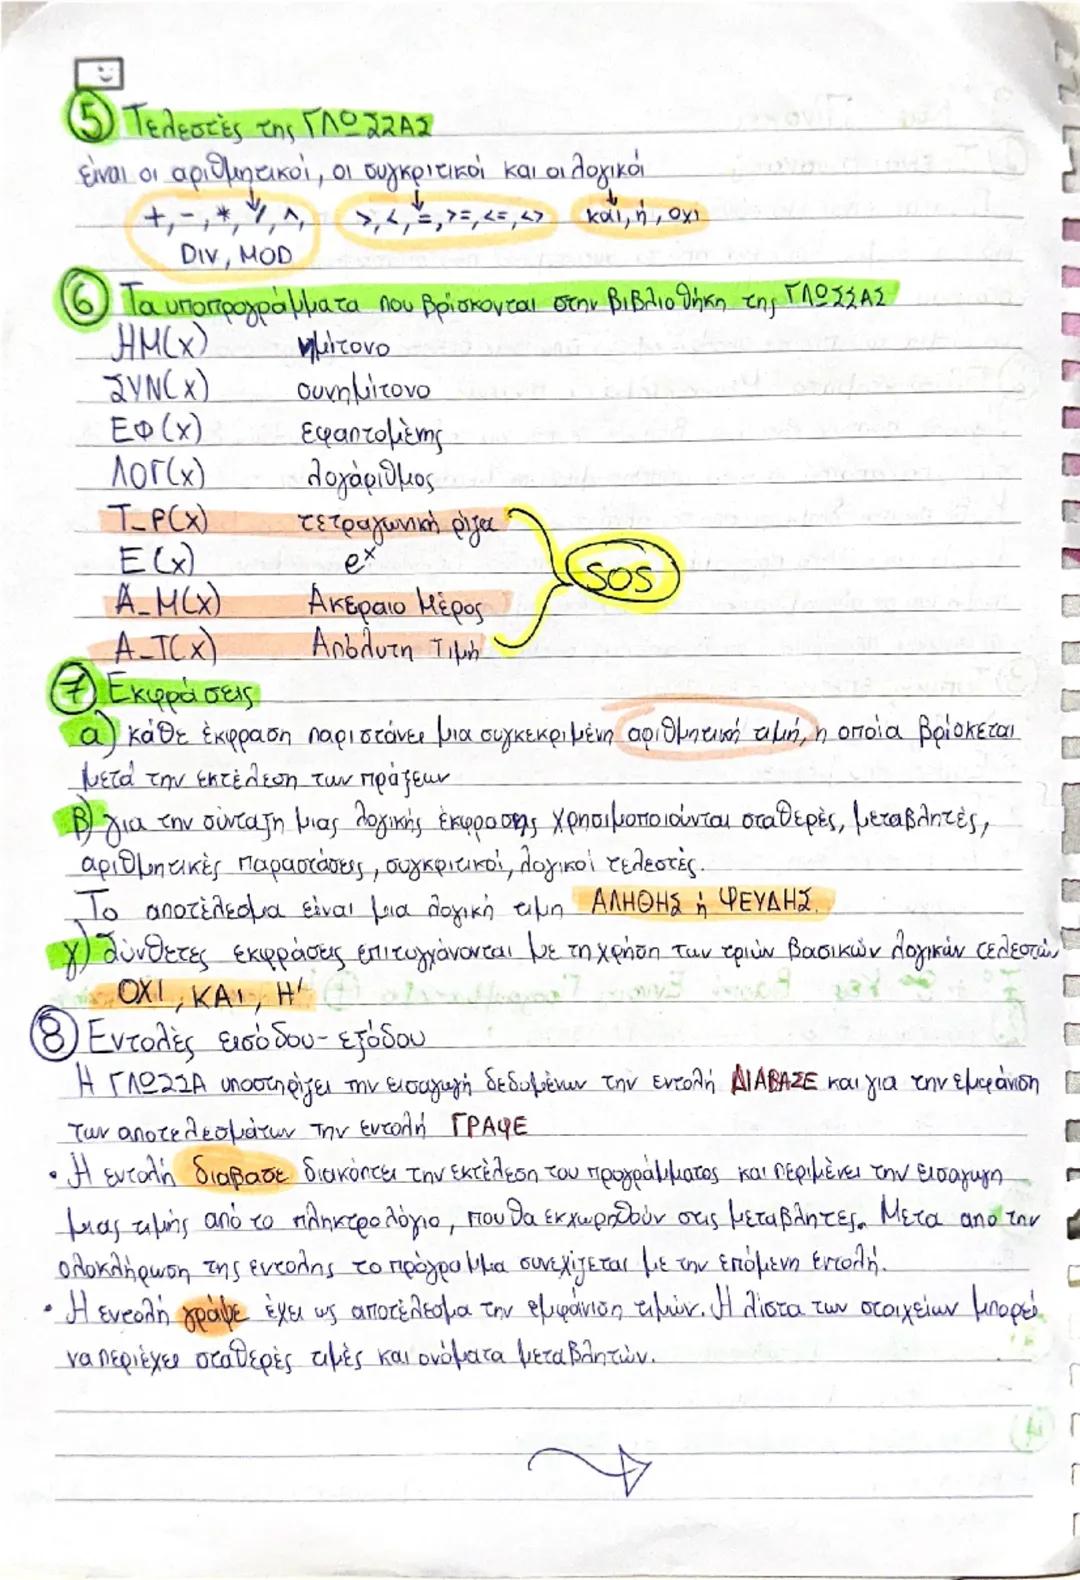 5 Τελεστές της ΓΛΩΣΣΑΣ
είναι οι αριθμητικοί, οι συγκριτικοί και οι λογικοί
+, -, *, /, ^, >, <, =, >=, <=, <> και, ή, όχι
DIV, MOD
6 Τα υποπρογράμματα που βρίσκονται στην βιβλιοθήκη της ΓΛΩΣΣΑΣ
ΗΜ(x) ημίτονο
ΣΥΝ(x) συνημίτονο
ΕΦ(x) εφαπτομένης
ΛΟΓ(x) λογάριθμος
Τ_Ρ(x) τετραγωνική ρίζα
Ε(x) e^x
SOS
Α_Μ(x) Ακέραιο Μέρος
Α_Τ(x) Απόλυτη Τιμή
7 Εκφράσεις
α) κάθε έκφραση παριστάνει μια συγκεκριμένη αριθμητική τιμή, η οποία βρίσκεται
μετά την εκτέλεση των πράξεων
β) για την σύνταξη μιας λογικής έκφρασης χρησιμοποιούνται σταθερές, μεταβλητές,
αριθμητικές παραστάσεις, συγκριτικοί, λογικοί τελεστές.
Το αποτέλεσμα είναι μια λογική τιμη ΑΛΗΘΗΣ ή ΨΕΥΔΗΣ.
γ) Σύνθετες εκφράσεις επιτυγχάνονται με τη χρήση των τριών βασικών λογικών τελεστών
ΟΧΙ, ΚΑΙ, Η'
8 Εντολές εισόδου-εξόδου
Η ΓΛΩΣΣΑ υποστηρίζει την εισαγωγή δεδομένων την εντολή ΔΙΑΒΑΣΕ και για την εμφάνιση
των αποτελεσμάτων την εντολή ΓΡΑΨΕ
• Η εντολή διαβασε διακόπτει την εκτέλεση του προγράμματος και περιμένει την εισαγωγη
μιας τιμής από το πληκτρολόγιο, που θα εκχωρηθούν στις μεταβλητες. Μετα απο την
ολοκλήρωση της εντολης το πρόγραμμα συνεχίζεται με την επόμενη εντολή.
• Η εντολή γράψε έχει ως αποτέλεσμα την εμφάνιση τιμών. Η λίστα των στοιχείων μπορεί
να περιέχει σταθερές τιμές και ονόματα μεταβλητών.